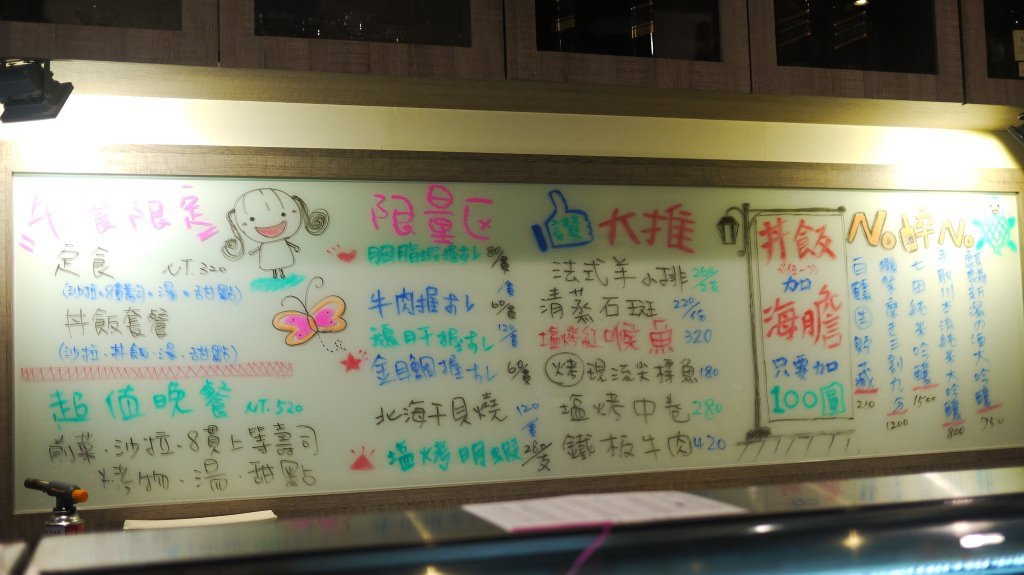 午食限定
定食 NT.320
(沙拉·8貫壽司·湯·甜點)
丼飯套餐
(沙拉·丼飯·湯·甜點)
超值晚餐 NT.520
前菜·沙拉·8貫上等壽司
烤物·湯·甜點
限量区
胭脂蝦握すし 80/貫
牛肉握すし 60/貫
鵝肝握すし 120/貫
金目鯛握すし 60/貫
北海干貝燒 120/貫
塩烤明蝦 280/支
讚 大推
法式羊小排 250/支
清蒸石斑 220/1份
塩烤紅喉魚 320
烤 現流尖梭魚 180
塩烤中卷 280
鐵板牛肉 420
丼飯
任一
加
海膽
只要加
100圓
No 醉 No
白鶴生貯蔵 210
獺祭磨き三割九分 1200
七田純米吟釀 1500
純米大吟釀 800
大吟釀 950